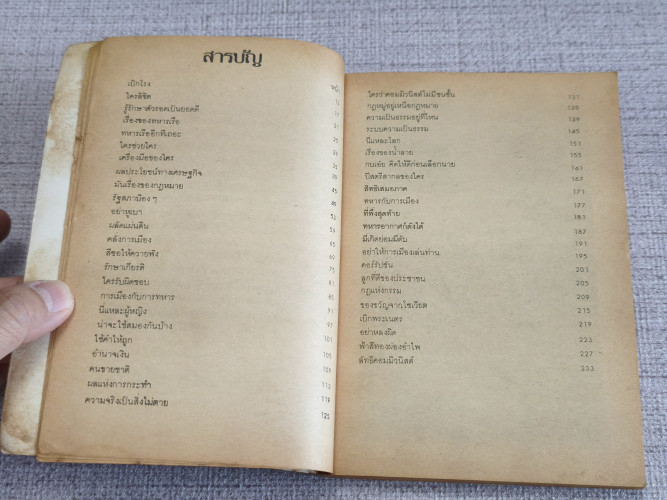 สารบัญ
หน้า
เบิกโรง
ใครลิขิต
รู้รักษาตัวรอดเป็นยอดดี 17
เรื่องของทหารเรือ 21
ทหารเรืออีกทีเถอะ 25
ใครช่วยใคร
เครื่องมือของใคร
ผลประโยชน์ทางเศรษฐกิจ
มันเรื่องของกฎหมาย 45
รัฐสภาน้อง ๆ
อย่าหูเบา 53
ผลัดแผ่นดิน
คลังการเมือง
สีซอให้ควายฟัง
รักษาเกียรติ 75
ใครรับผิดชอบ 81
การเมืองกับการทหาร
นี่แหละผู้หญิง 91
น่าจะใช้สมองกันบ้าง 97
ใช้คำให้ถูก 101
อำนาจเงิน 105
คนขายชาติ 109
ผลแห่งการกระทำ 113
ความจริงเป็นสิ่งไม่ตาย 119
125
ใครว่าคอมมิวนิสต์ไม่มีชนชั้น 131
กฎหมู่อยู่เหนือกฎหมาย
ความเป็นธรรมอยู่ที่ไหน 139
ระบบความเป็นธรรม 145
นี่แหละโลก 151
เรื่องของน้ำลาย 155
กบเอ๋ย คิดให้ดีก่อนเลือกนาย 161
ปีสตรีสากลของใคร 167
สิทธิเสมอภาค 171
ทหารกับการเมือง 177
ที่พึ่งสุดท้าย 183
ทหารอากาศก็ดังได้ 187
มีเกิดย่อมมีดับ 191
อย่าให้การเมืองเล่นท่าน 195
คอร์รัปชั่น 201
ลูกที่ดีของประชาชน 205
กฎแห่งกรรม 209
ของขวัญจากโซเวียต 215
เบิกพระเนตร 219
อย่าหลงผิด 223
ฟ้าสีทองผ่องอำไพ 227
ลัทธิคอมมิวนิสต์ 233